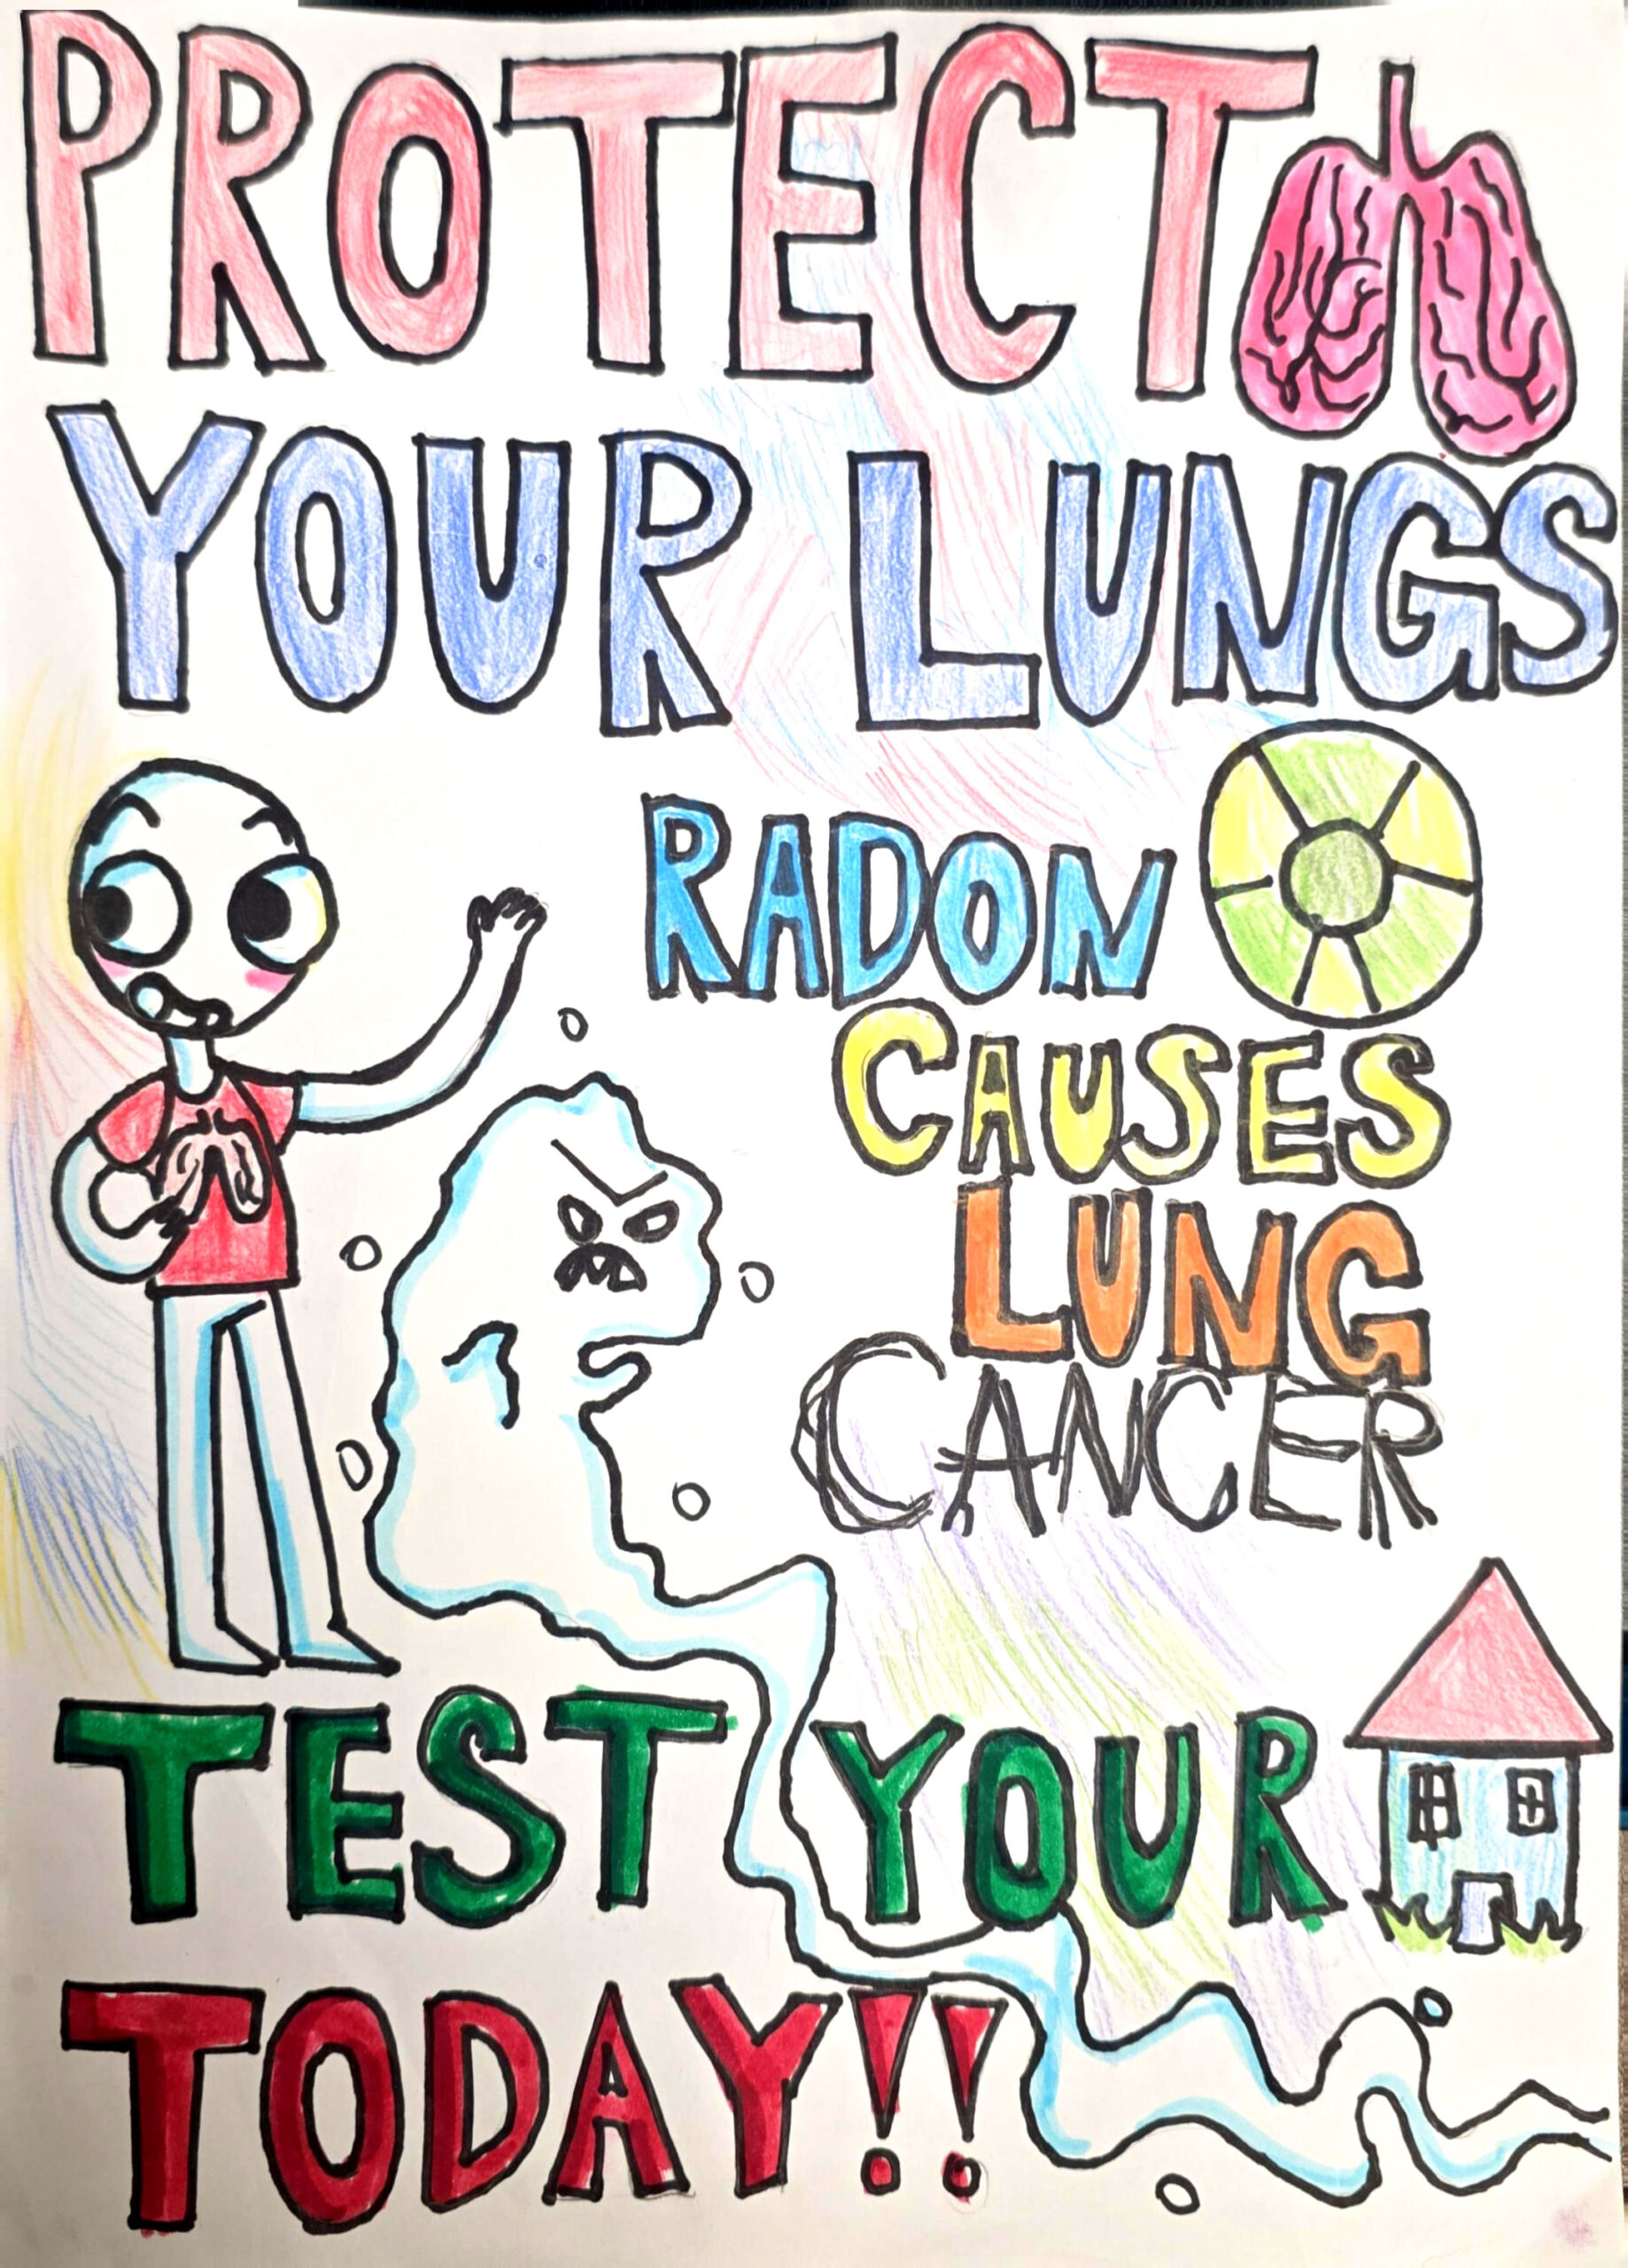 PROTECT
YOUR LUNGS
RADON
CAUSES
LUNG
CANCER
TEST YOUR
TODAY!!